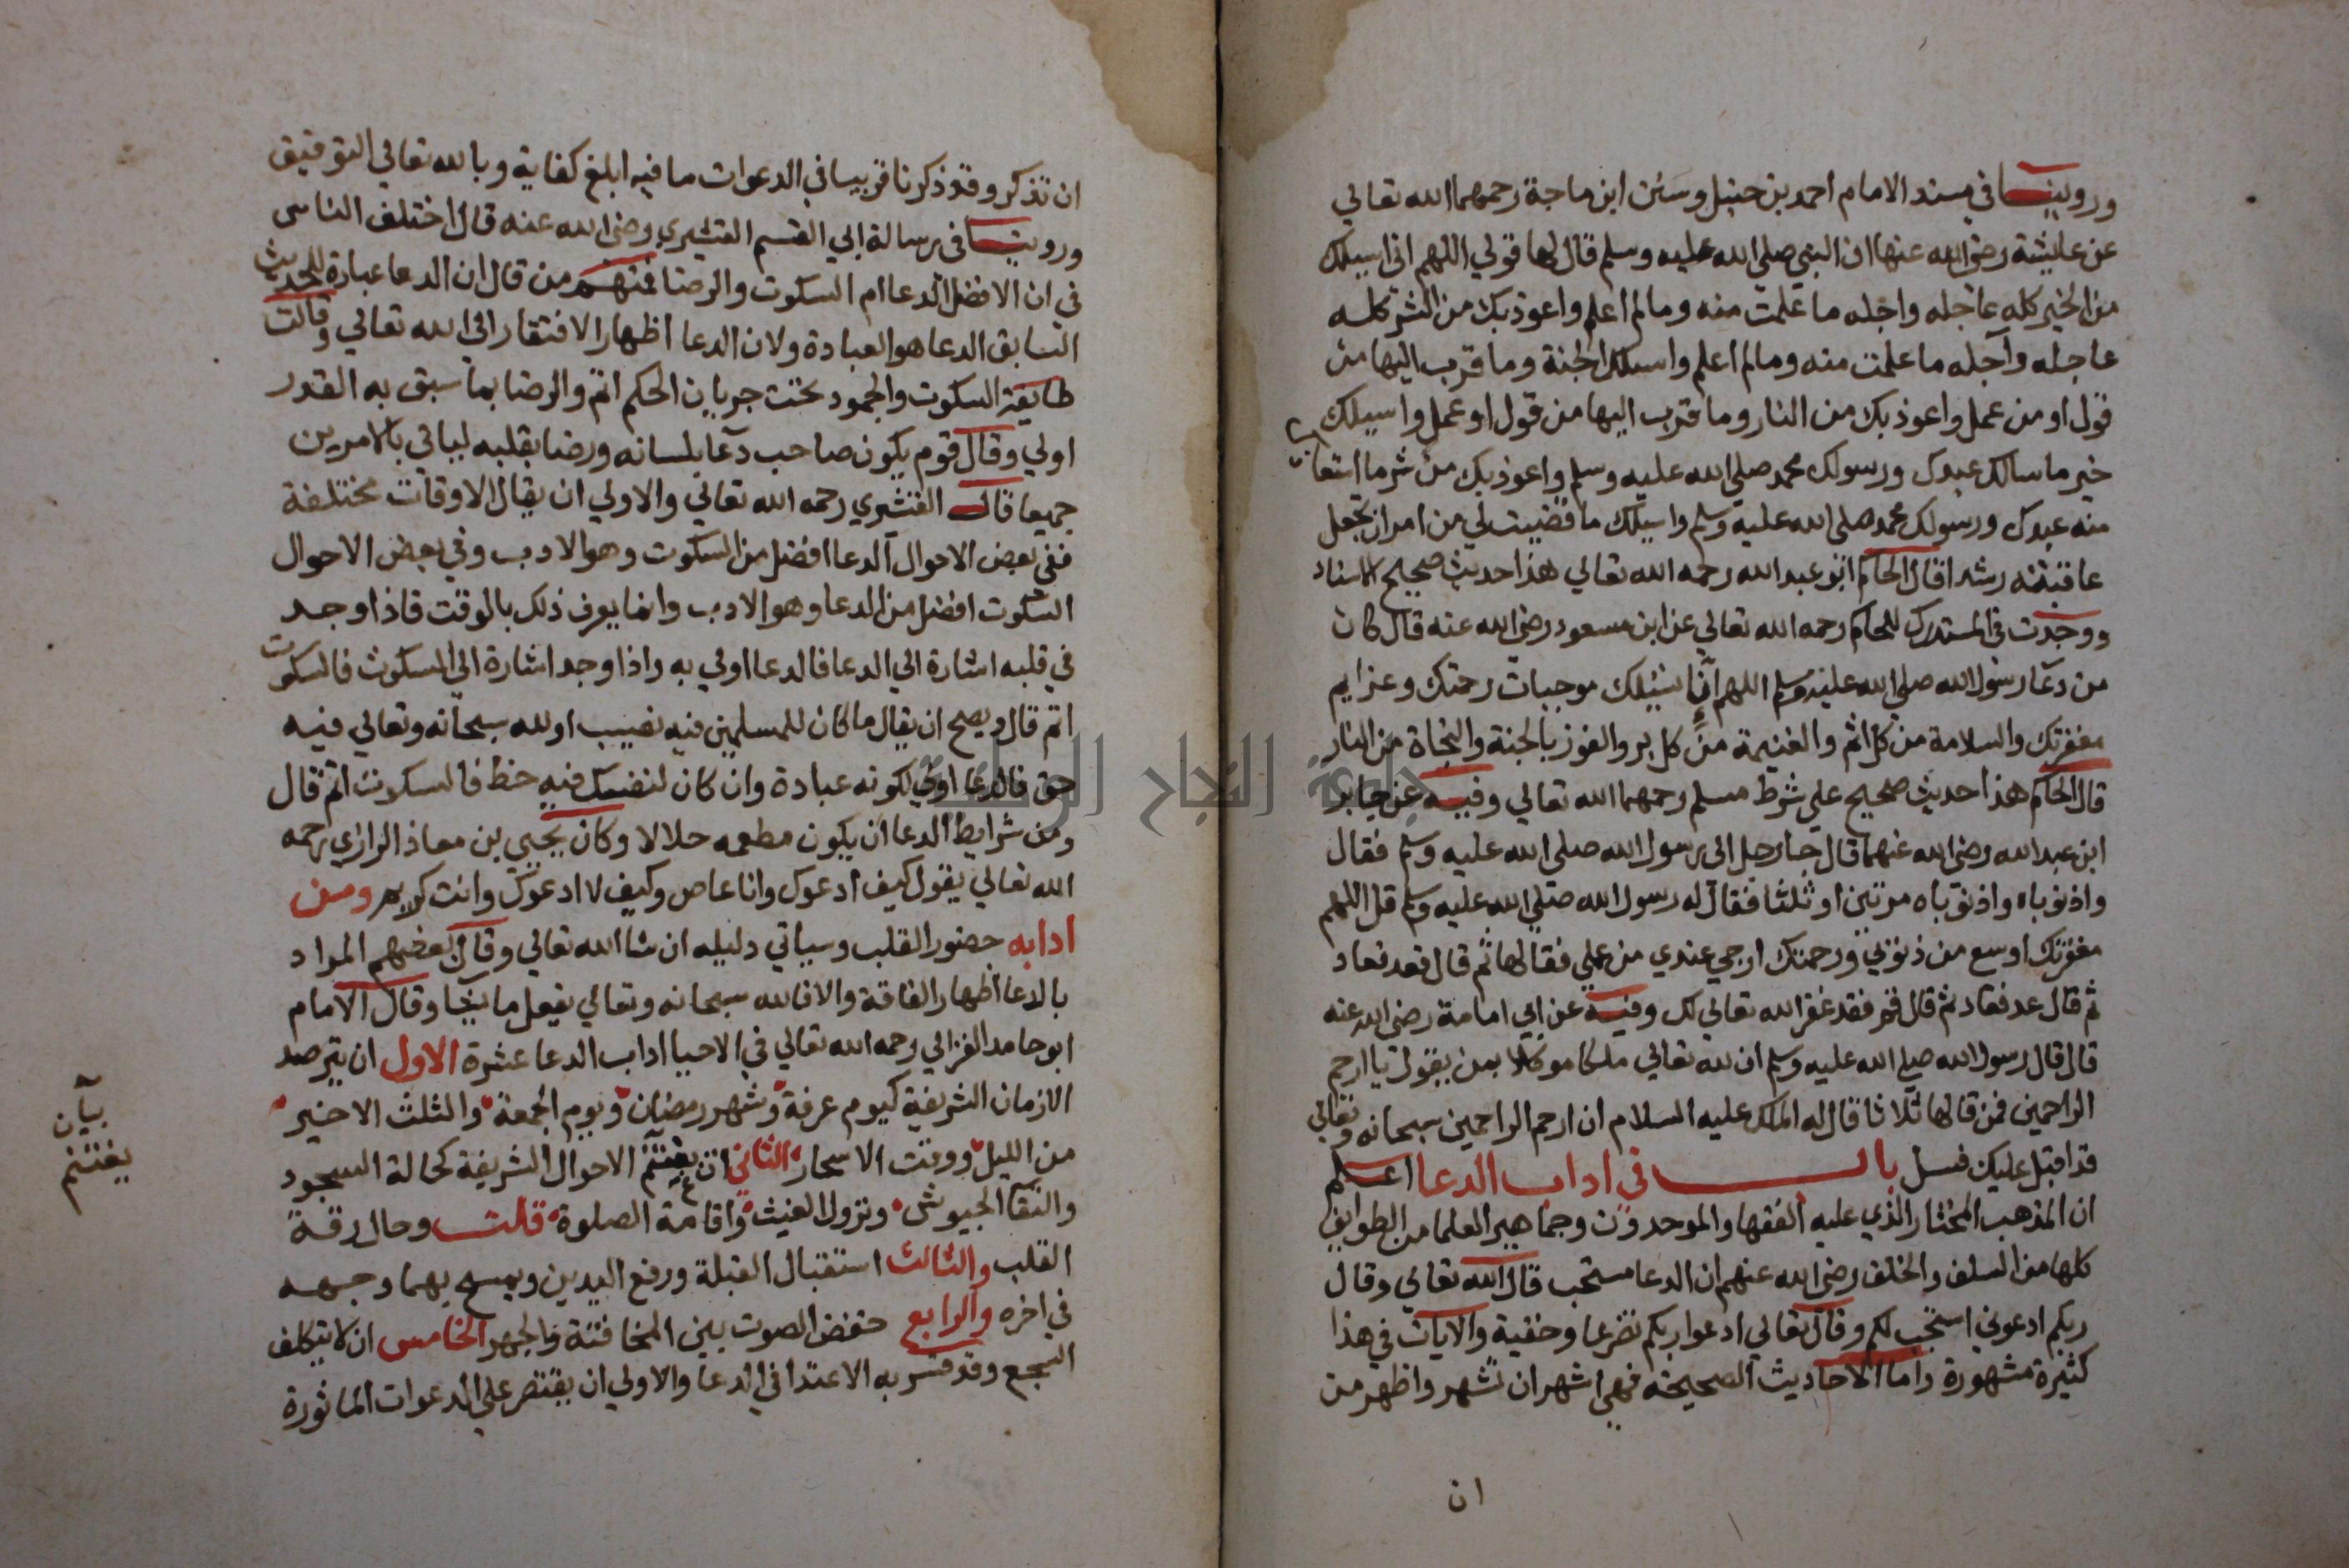 وروينا في مسند الامام احمد بن حنبل وسنن ابن ماجة رحمهما الله تعالي
عن عايشة رضي الله عنها ان النبي صلي الله عليه وسلم قال لها قولي اللهم اني اسيلك
من الخير كله عاجله واجله ما علمت منه وما لم اعلم واعوذ بك من الشر كله
عاجله وآجله ما علمت منه وما لم اعلم واسيلك الجنة وما قرب اليها من
قول او من عمل واعوذ بك من النار وما قرب اليها من قول او عمل واسيلك
خير ما سالك عبدك ورسولك محمد صلي الله عليه وسلم واعوذ بك من شر ما استعا
منه عبدك ورسولك محمد صلي الله عليه وسلم واسيلك ما قضيت لي من امر ان تجعل
عاقبته رشدا قال الحاكم ابو عبد الله رحمه الله تعالي هذا حديث صحيح الاسناد
ووجدت في المستدرك للحاكم رحمه الله تعالي عن ابن مسعود رضي الله عنه قال كان
من دعا رسول الله صلي الله عليه وسلم اللهم انا نسيلك موجبات رحمتك وعزايم
مغفرتك والسلامة من كل اثم والغنيمة من كل بر والفوز بالجنة والنجاة من النار
قال الحاكم هذا حديث صحيح علي شرط مسلم رحمهما الله تعالي وفيه عن جابر
ابن عبد الله رضي الله عنهما قال جا رجل الي رسول الله صلي الله عليه وسلم فقال
واذنوباه واذنوباه مرتين او ثلثا فقال له رسول الله صلي الله عليه وسلم قل اللهم
مغفرتك اوسع من ذنوبي ورحمتك ارجي عندي من عملي فقالها ثم قال فعد فعاد
ثم قال عد فعاد ثم قال قم فقد غفر الله تعالي لك وفيه عن ابي امامة رضي الله عنه
قال قال رسول الله صلي الله عليه وسلم ان لله تعالي ملكا موكلا بمن يقول يا ارحم
الراحمين فمن قالها ثلاثا قال له الملك عليه السلام ان ارحم الراحمين سبحانه وتعالي
قد اقبل عليك فسل باب في اداب الدعا اعلم
ان المذهب المختار الذي عليه الفقها والموحدون وجماهير العلما من الطوايف
كلها من السلف والخلف رضي الله عنهم ان الدعا مستحب قال الله تعالي وقال
ربكم ادعوني استجب لكم وقال تعالي ادعوا ربكم تضرعا وخفية والايات في هذا
كثيرة مشهورة واما الاحاديث الصحيحة فهي اشهر ان تشهر واظهر من
ان
ان تذكر وقد ذكرنا قريبا في الدعوات ما فيه ابلغ كفاية وبالله تعالي التوفيق
وروينا في رسالة ابي القسم القشيري رضي الله عنه قال اختلف الناس
في ان الافضل الدعا ام السكوت والرضا فمنهم من قال ان الدعا عبادة للحديث
السابق الدعا هو العبادة ولان الدعا اظهار الافتقار الي الله تعالي وقالت
طايفة السكوت والجمود تحت جريان الحكم اتم والرضا بما سبق به القدر
اولي وقال قوم يكون صاحب دعا بلسانه ورضا بقلبه لياتي بالامرين
جميعا قال القشيري رحمه الله تعالي والاولي ان يقال الاوقات مختلفة
ففي بعض الاحوال الدعا افضل من السكوت وهو الادب وفي بعض الاحوال
السكوت افضل من الدعا وهو الادب وانما يعرف ذلك بالوقت فاذا وجد
في قلبه اشارة الي الدعا فالدعا اولي به واذا وجد اشارة الي السكوت فالسكوت
اتم قال ويصح ان يقال ما كان للمسلمين فيه نصيب او لله سبحانه وتعالي فيه
حق فالدعا اولي لكونه عبادة وان كان لنفسك فيه حظ فالسكوت اتم قال
ومن شرايط الدعا ان يكون مطعمه حلالا وكان يحيي بن معاذ الرازي رحمه
الله تعالي يقول كيف ادعوك وانا عاص وكيف لا ادعوك وانت كريم ومن
ادابه حضور القلب وسياتي دليله ان شا الله تعالي وقال بعضهم المراد
بالدعا اظهار الفاقة والا فالله سبحانه وتعالي يفعل ما يشا وقال الامام
ابو حامد الغزالي رحمه الله تعالي في الاحيا اداب الدعا عشرة الاول ان يترصد
الازمان الشريفة كيوم عرفة وشهر رمضان ويوم الجمعة والثلث الاخير
من الليل ووقت الاسحار الثاني ان يغتنم الاحوال الشريفة كحالة السجود
والتقا الجيوش ونزول الغيث واقامة الصلوة قلت وحال رقة
القلب والثالث استقبال القبلة ورفع اليدين ويمسح بهما وجهه
في اخره والرابع خفض الصوت بين المخافتة والجهر الخامس ان لا يتكلف
السجع وقد فسر به الاعتدا في الدعا والاولي ان يقتصر علي الدعوات الماثورة
بيان
يغتنم
جامعة النجاح الوطنية